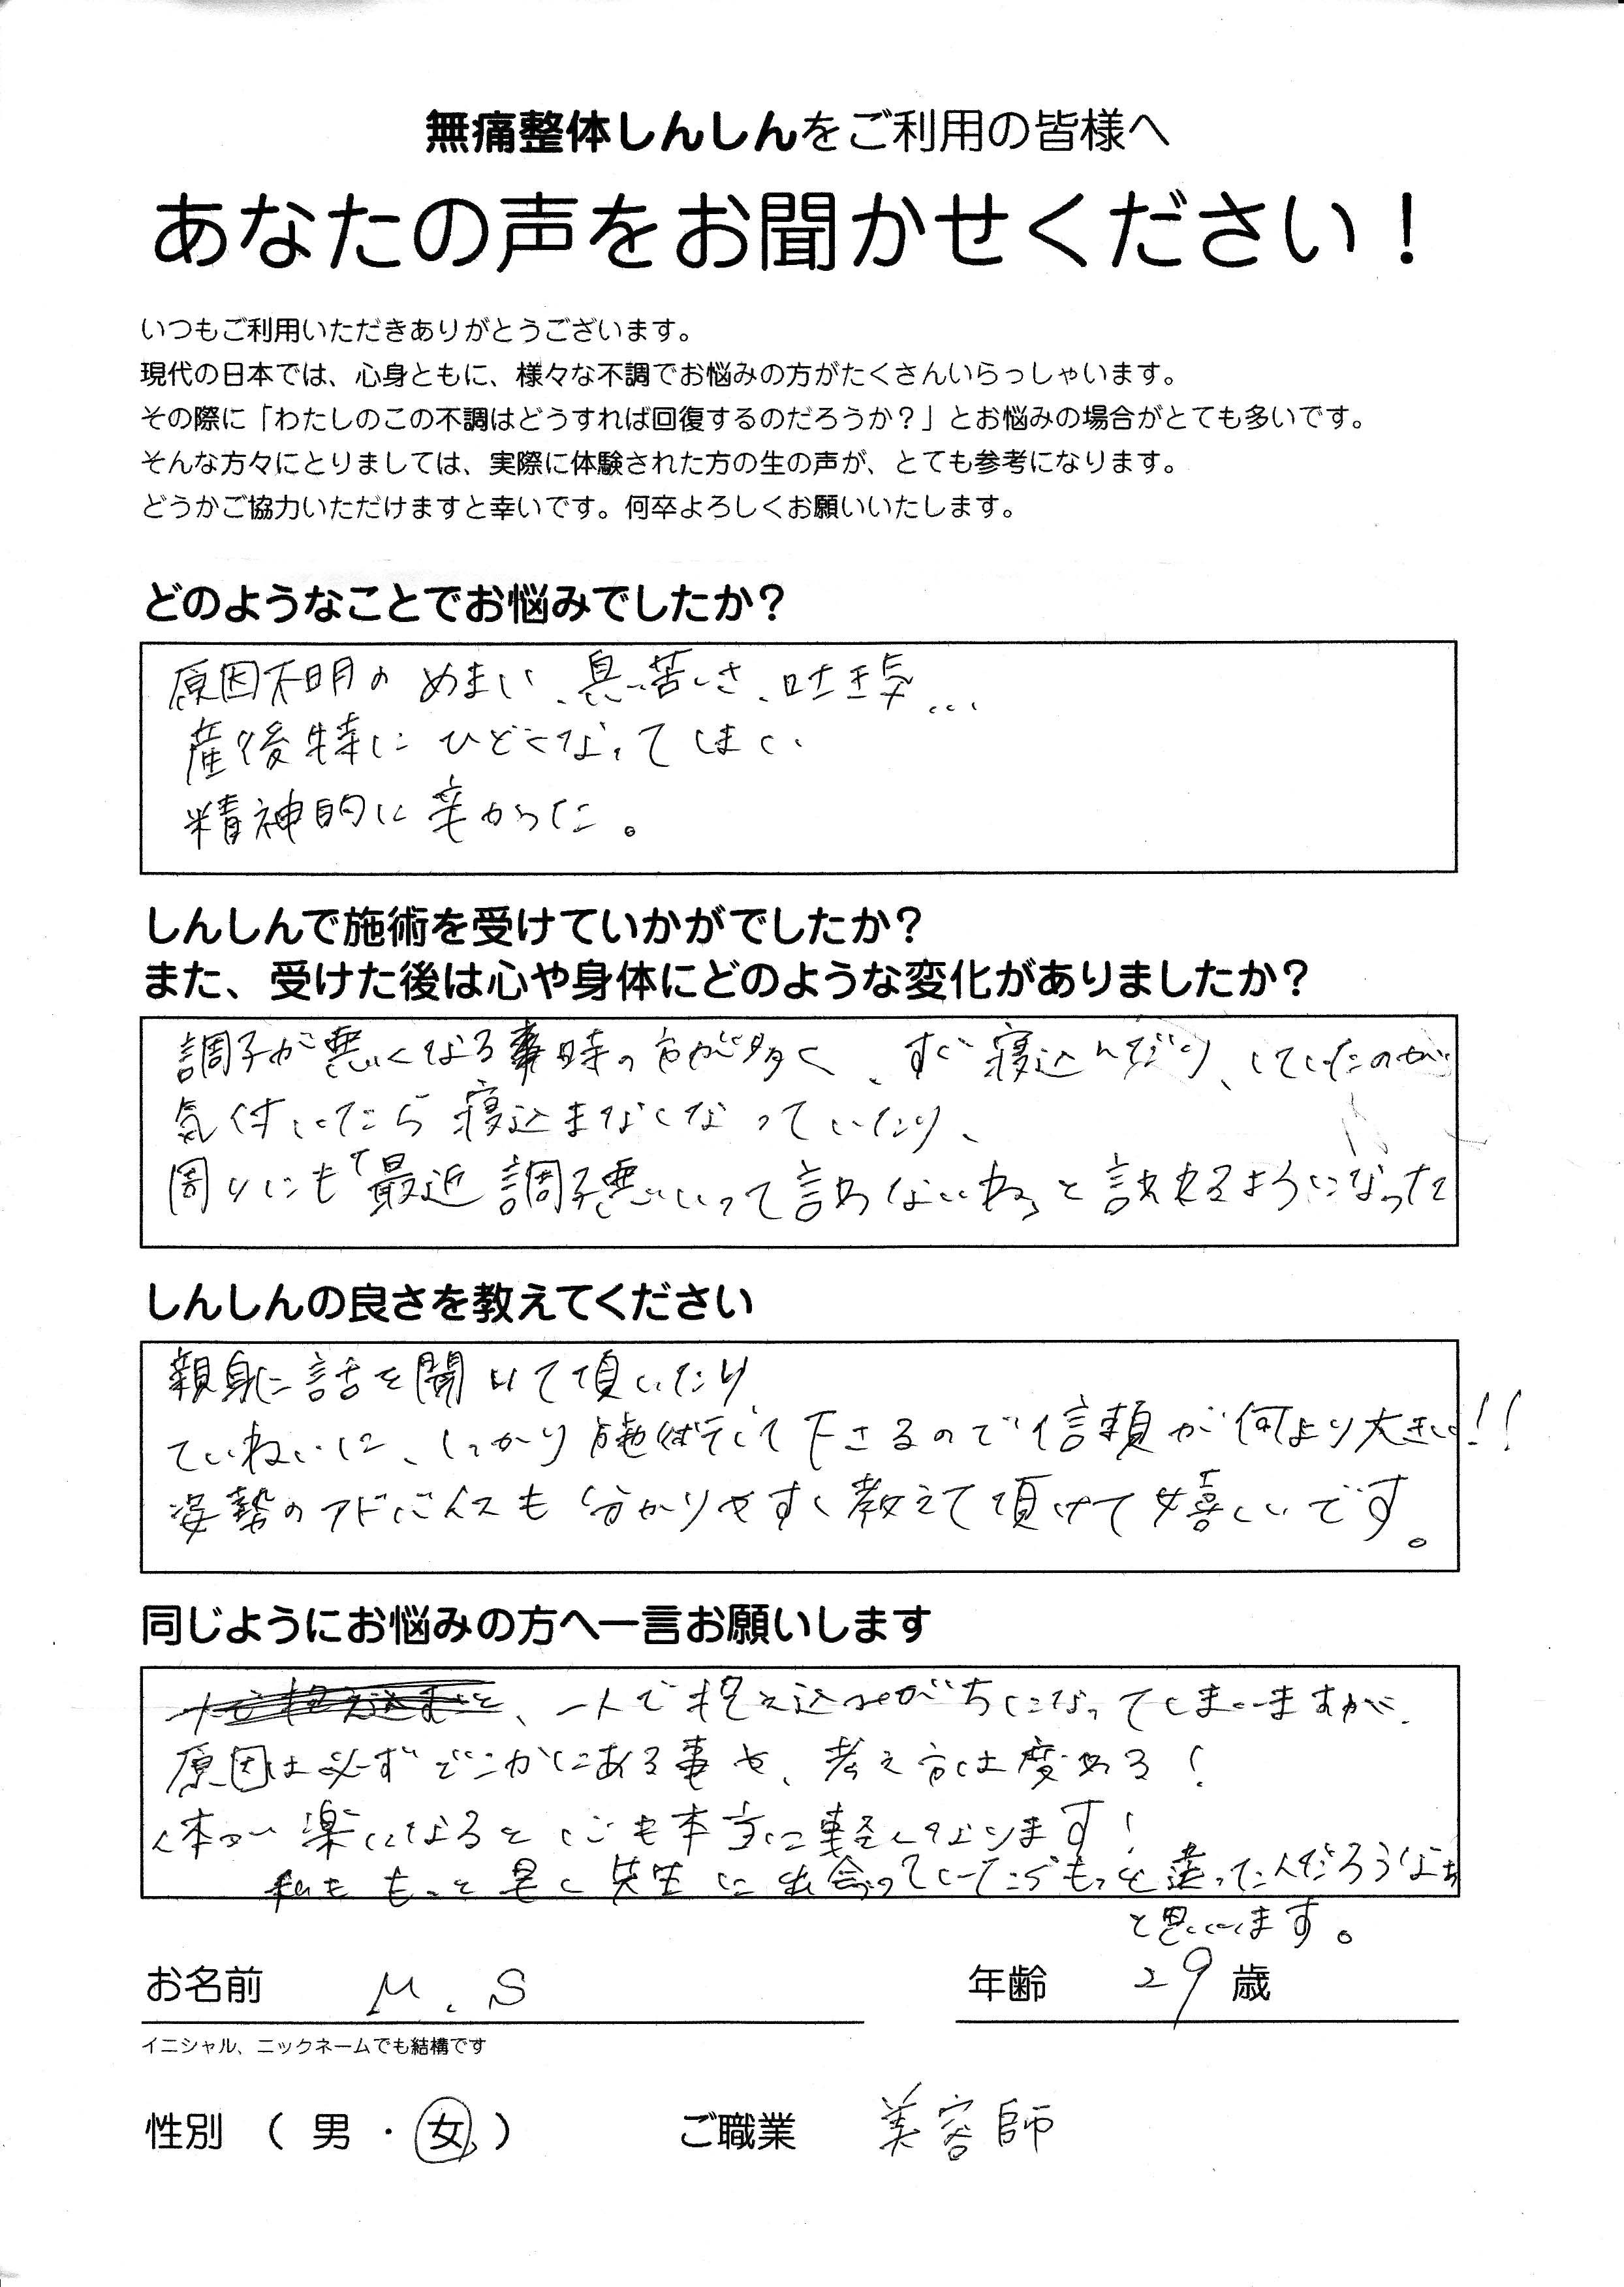 無痛整体しんしんをご利用の皆様へ
あなたの声をお聞かせください！
いつもご利用いただきありがとうございます。
現代の日本では、心身ともに、様々な不調でお悩みの方がたくさんいらっしゃいます。
その際に「わたしのこの不調はどうすれば回復するのだろうか？」とお悩みの場合がとても多いです。
そんな方々にとりましては、実際に体験された方の生の声が、とても参考になります。
どうかご協力いただけますと幸いです。何卒よろしくお願いいたします。
どのようなことでお悩みでしたか？
原因不明の めまい、息苦しさ、吐き気...
産後特に ひどくなってしまい
精神的に辛かった。
しんしんで施術を受けていかがでしたか？
また、受けた後は心や身体にどのような変化がありましたか？
調子が悪くなる時の方が多く、すぐ寝込んだり、していたのが
気付いたら寝込まなくなっていたり、
周りにも「最近調子悪いって言わないね」と言われるようになった
しんしんの良さを教えてください
親身に話を聞いて頂いたり
ていねいに、しっかり施術して下さるので信頼が何より大きい!!
姿勢のアドバイスも分かりやすく教えて頂けて嬉しいです。
同じようにお悩みの方へ一言お願いします
、一人で抱え込みがちになってしまいますが、
原因は必ずどこかにある事や、考え方は変わる！
体が楽になると心も本当に軽くなります！
私ももっと早く先生に出会っていたらもっと違ったんだろうなぁ
と思います。
お名前 M.S 年齢 29歳
イニシャル、ニックネームでも結構です
性別 （ 男 ・ 女 ） ご職業 美容師